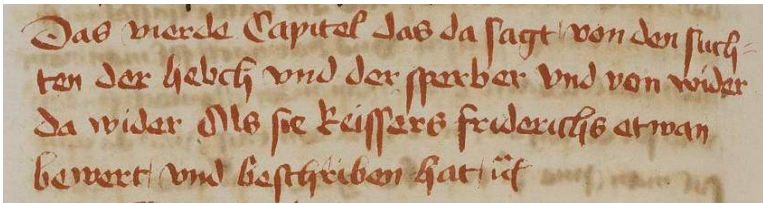 Das vierde Capitel das da sagt von den such=
ten der hebch vnd der sperber vnd von wider
da wider Als sie keissers friderichs etwan
bewert vnd beschriben hat